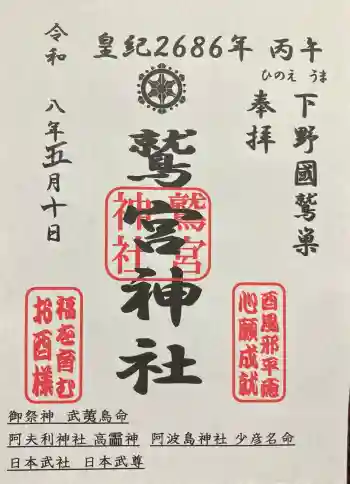 皇紀2686年 丙午
ひのえ うま
奉拝
下野國鷲巣
鷲宮神社
鷲宮神社
令和 八年五月十日
酉風邪平癒
心願成就
福を育む
お酉様
御祭神 武夷鳥命
阿夫利神社 高龗神 阿波島神社 少彦名命
日本武社 日本武尊